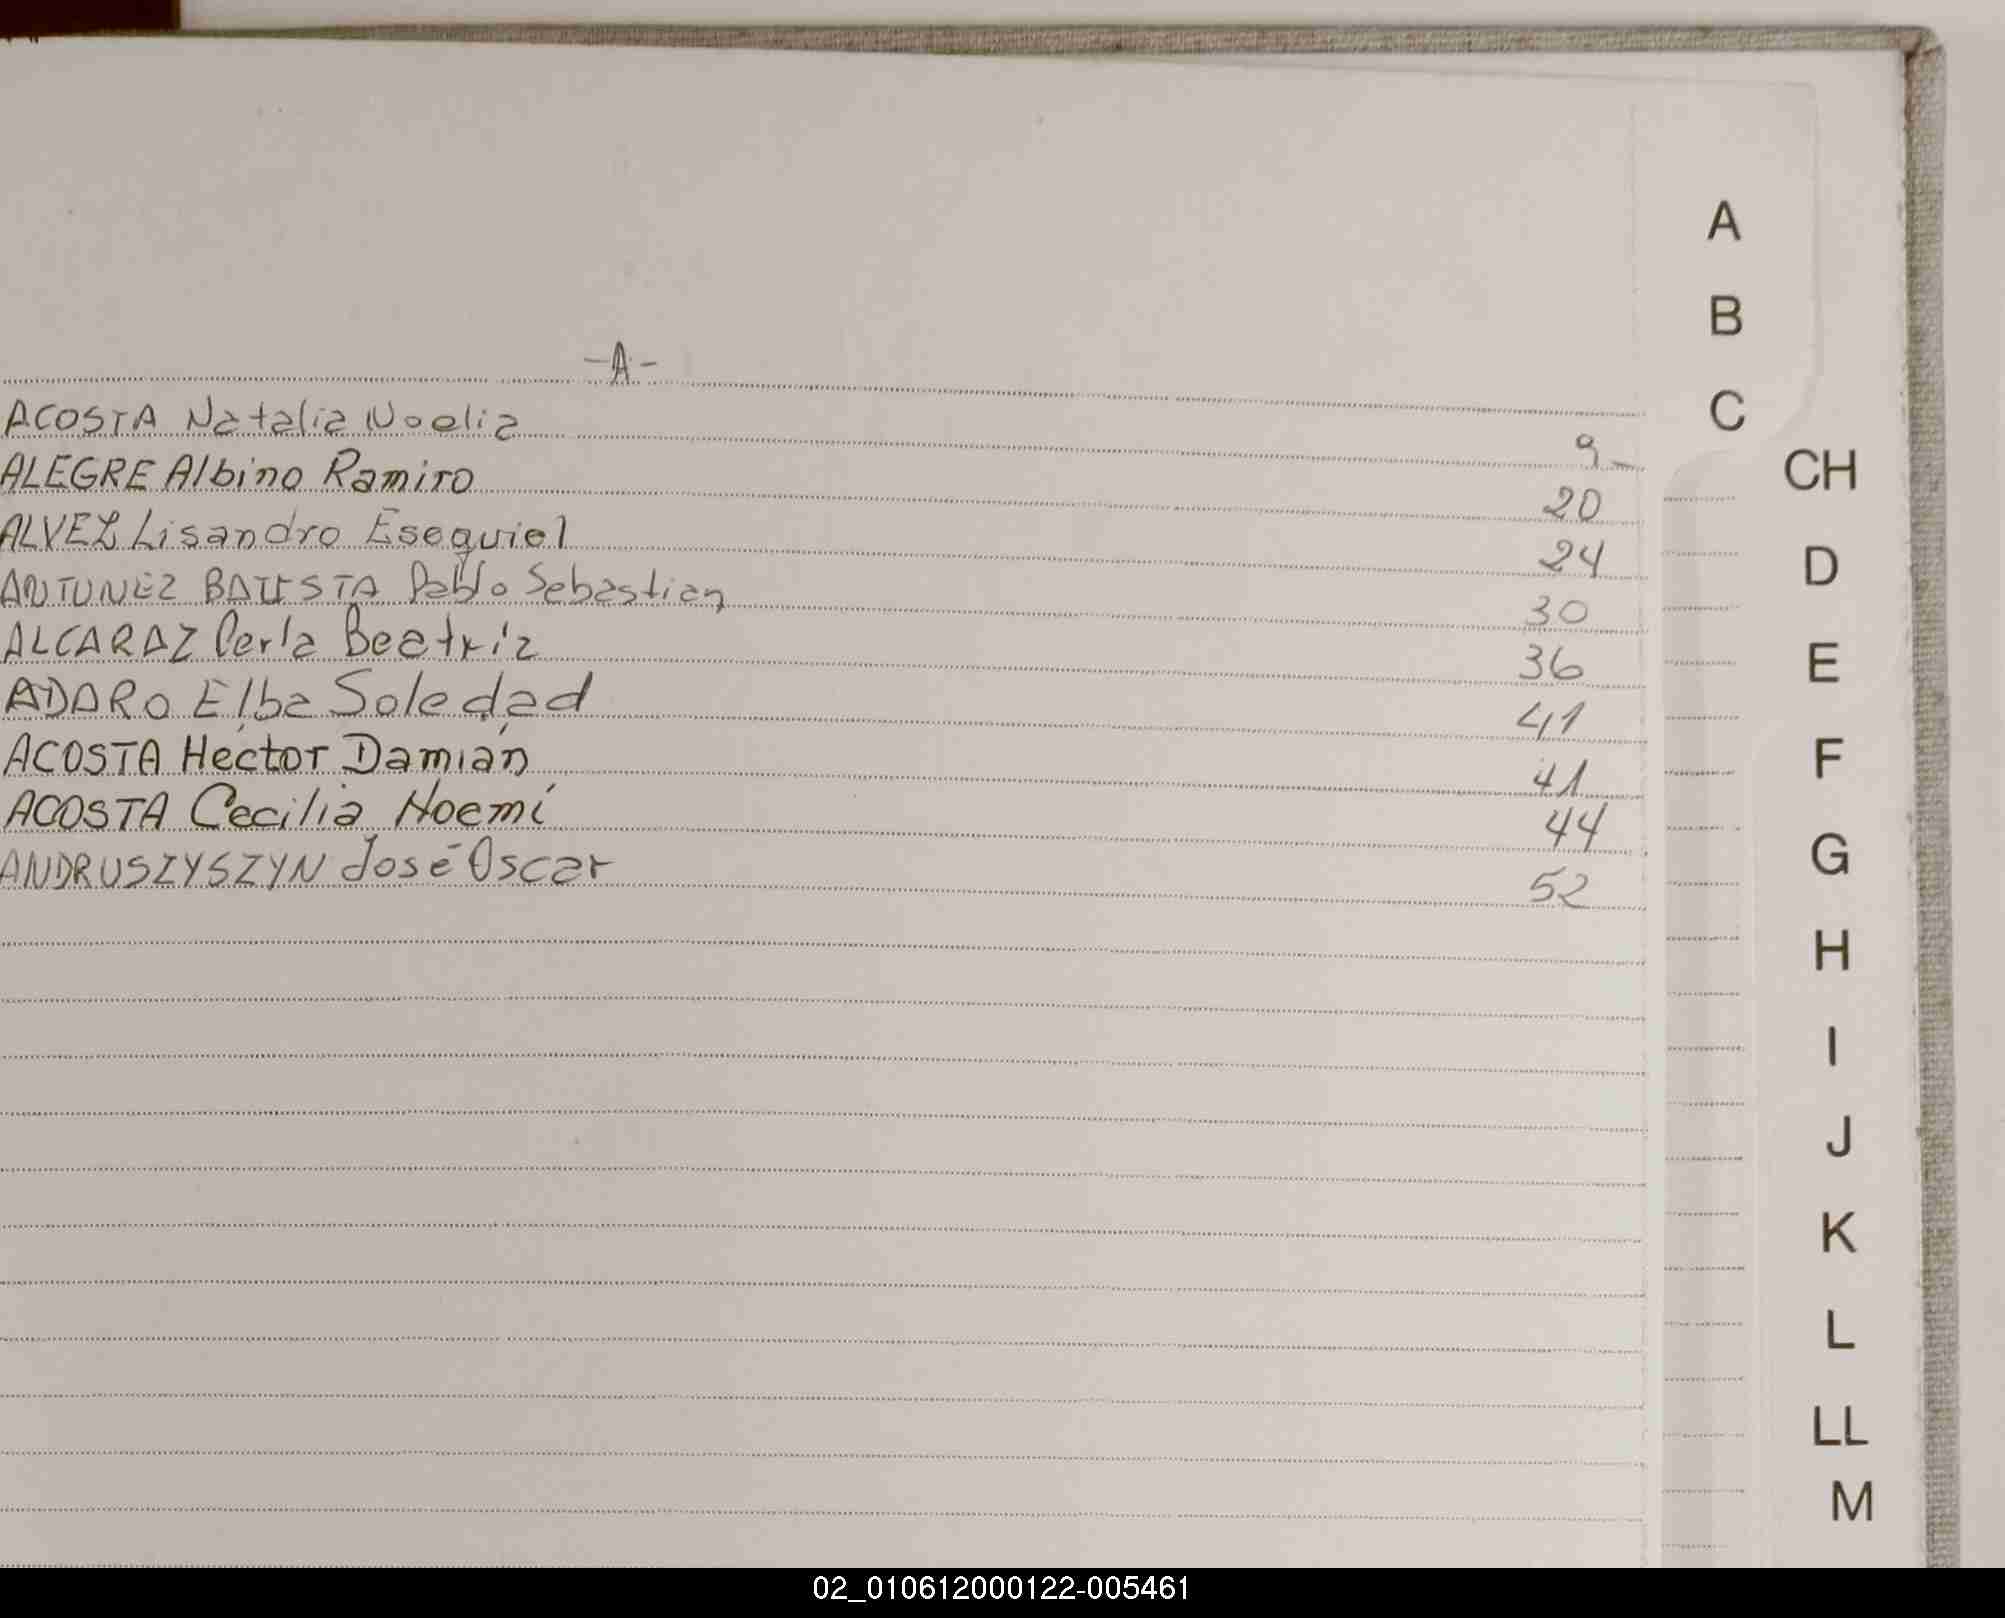 -A-
ACOSTA Natalia Noelia 9-
ALEGRE Albino Ramiro 20
ALVEZ Lisandro Esequiel 24
ANTUNEZ BATISTA Pablo Sebastian 30
ALCARAZ Perla Beatriz 36
ADARO Elba Soledad 41
ACOSTA Héctor Damián 41
ACOSTA Cecilia Noemí 44
ANDRUSZYSZYN José Oscar 52
A
B
C
CH
D
E
F
G
H
I
J
K
L
LL
M
02_010612000122-005461